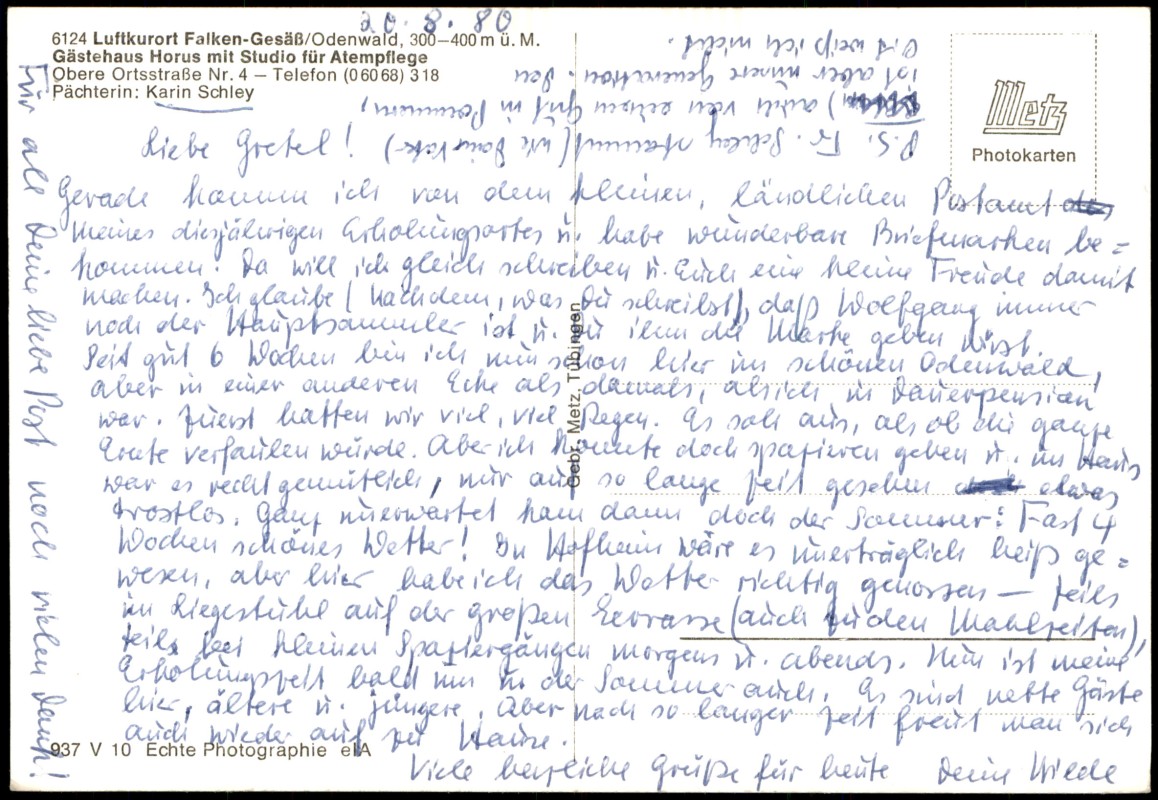 20.8.80
6124 Luftkurort Falken-Gesäß/Odenwald, 300–400 m ü. M.
Gästehaus Horus mit Studio für Atempflege
Obere Ortsstraße Nr. 4 – Telefon (06068) 318
Pächterin: Karin Schley
Metz
Photokarten
Liebe Gretel!
Gerade komme ich von dem kleinen, ländlichen Postamt
meines diesjährigen Erholungsortes u. habe wunderbare Briefmarken be=
kommen. Da will ich gleich schreiben u. Euch eine kleine Freude damit
machen. Ich glaube (nachdem, was Du schreibst), daß Wolfgang immer
noch der Hauptsammler ist u. Du ihm die Marke geben wirst.
Seit gut 6 Wochen bin ich nun schon hier im schönen Odenwald,
aber in einer anderen Ecke als damals, als ich in Dauerpension
war. Zuerst hatten wir viel, viel Regen. Es sah aus, als ob die ganze
Ernte verfaulen würde. Aber ich konnte doch spazieren gehen u. im Haus
war es recht gemütlich, nur auf so lange Zeit gesehen etwas
trostlos. Ganz unerwartet kam dann doch der Sommer: Fast 4
Wochen schönes Wetter! In Hofheim wäre es unerträglich heiß ge=
wesen, aber hier habe ich das Wetter richtig genossen — teils
im Liegestuhl auf der großen Terrasse (auch zu den Mahlzeiten),
teils bei kleinen Spaziergängen morgens u. abends. Nun ist meine
Erholungszeit bald um u. der Sommer auch. Es sind nette Gäste
hier, ältere u. jüngere. Aber nach so langer Zeit freut man sich
auch wieder auf zu Hause.
Viele herzliche Grüße für heute Deine Wiede
P.S. Fr. Schley stammt (wie Dein Vater)
auch von einem Gut in Pommern,
ist aber unsere Generation. Den
Ort weiß ich nicht.
Für all Deine liebe Post noch vielen Dank!
Gebr. Metz, Tübingen
937 V 10 Echte Photographie elA